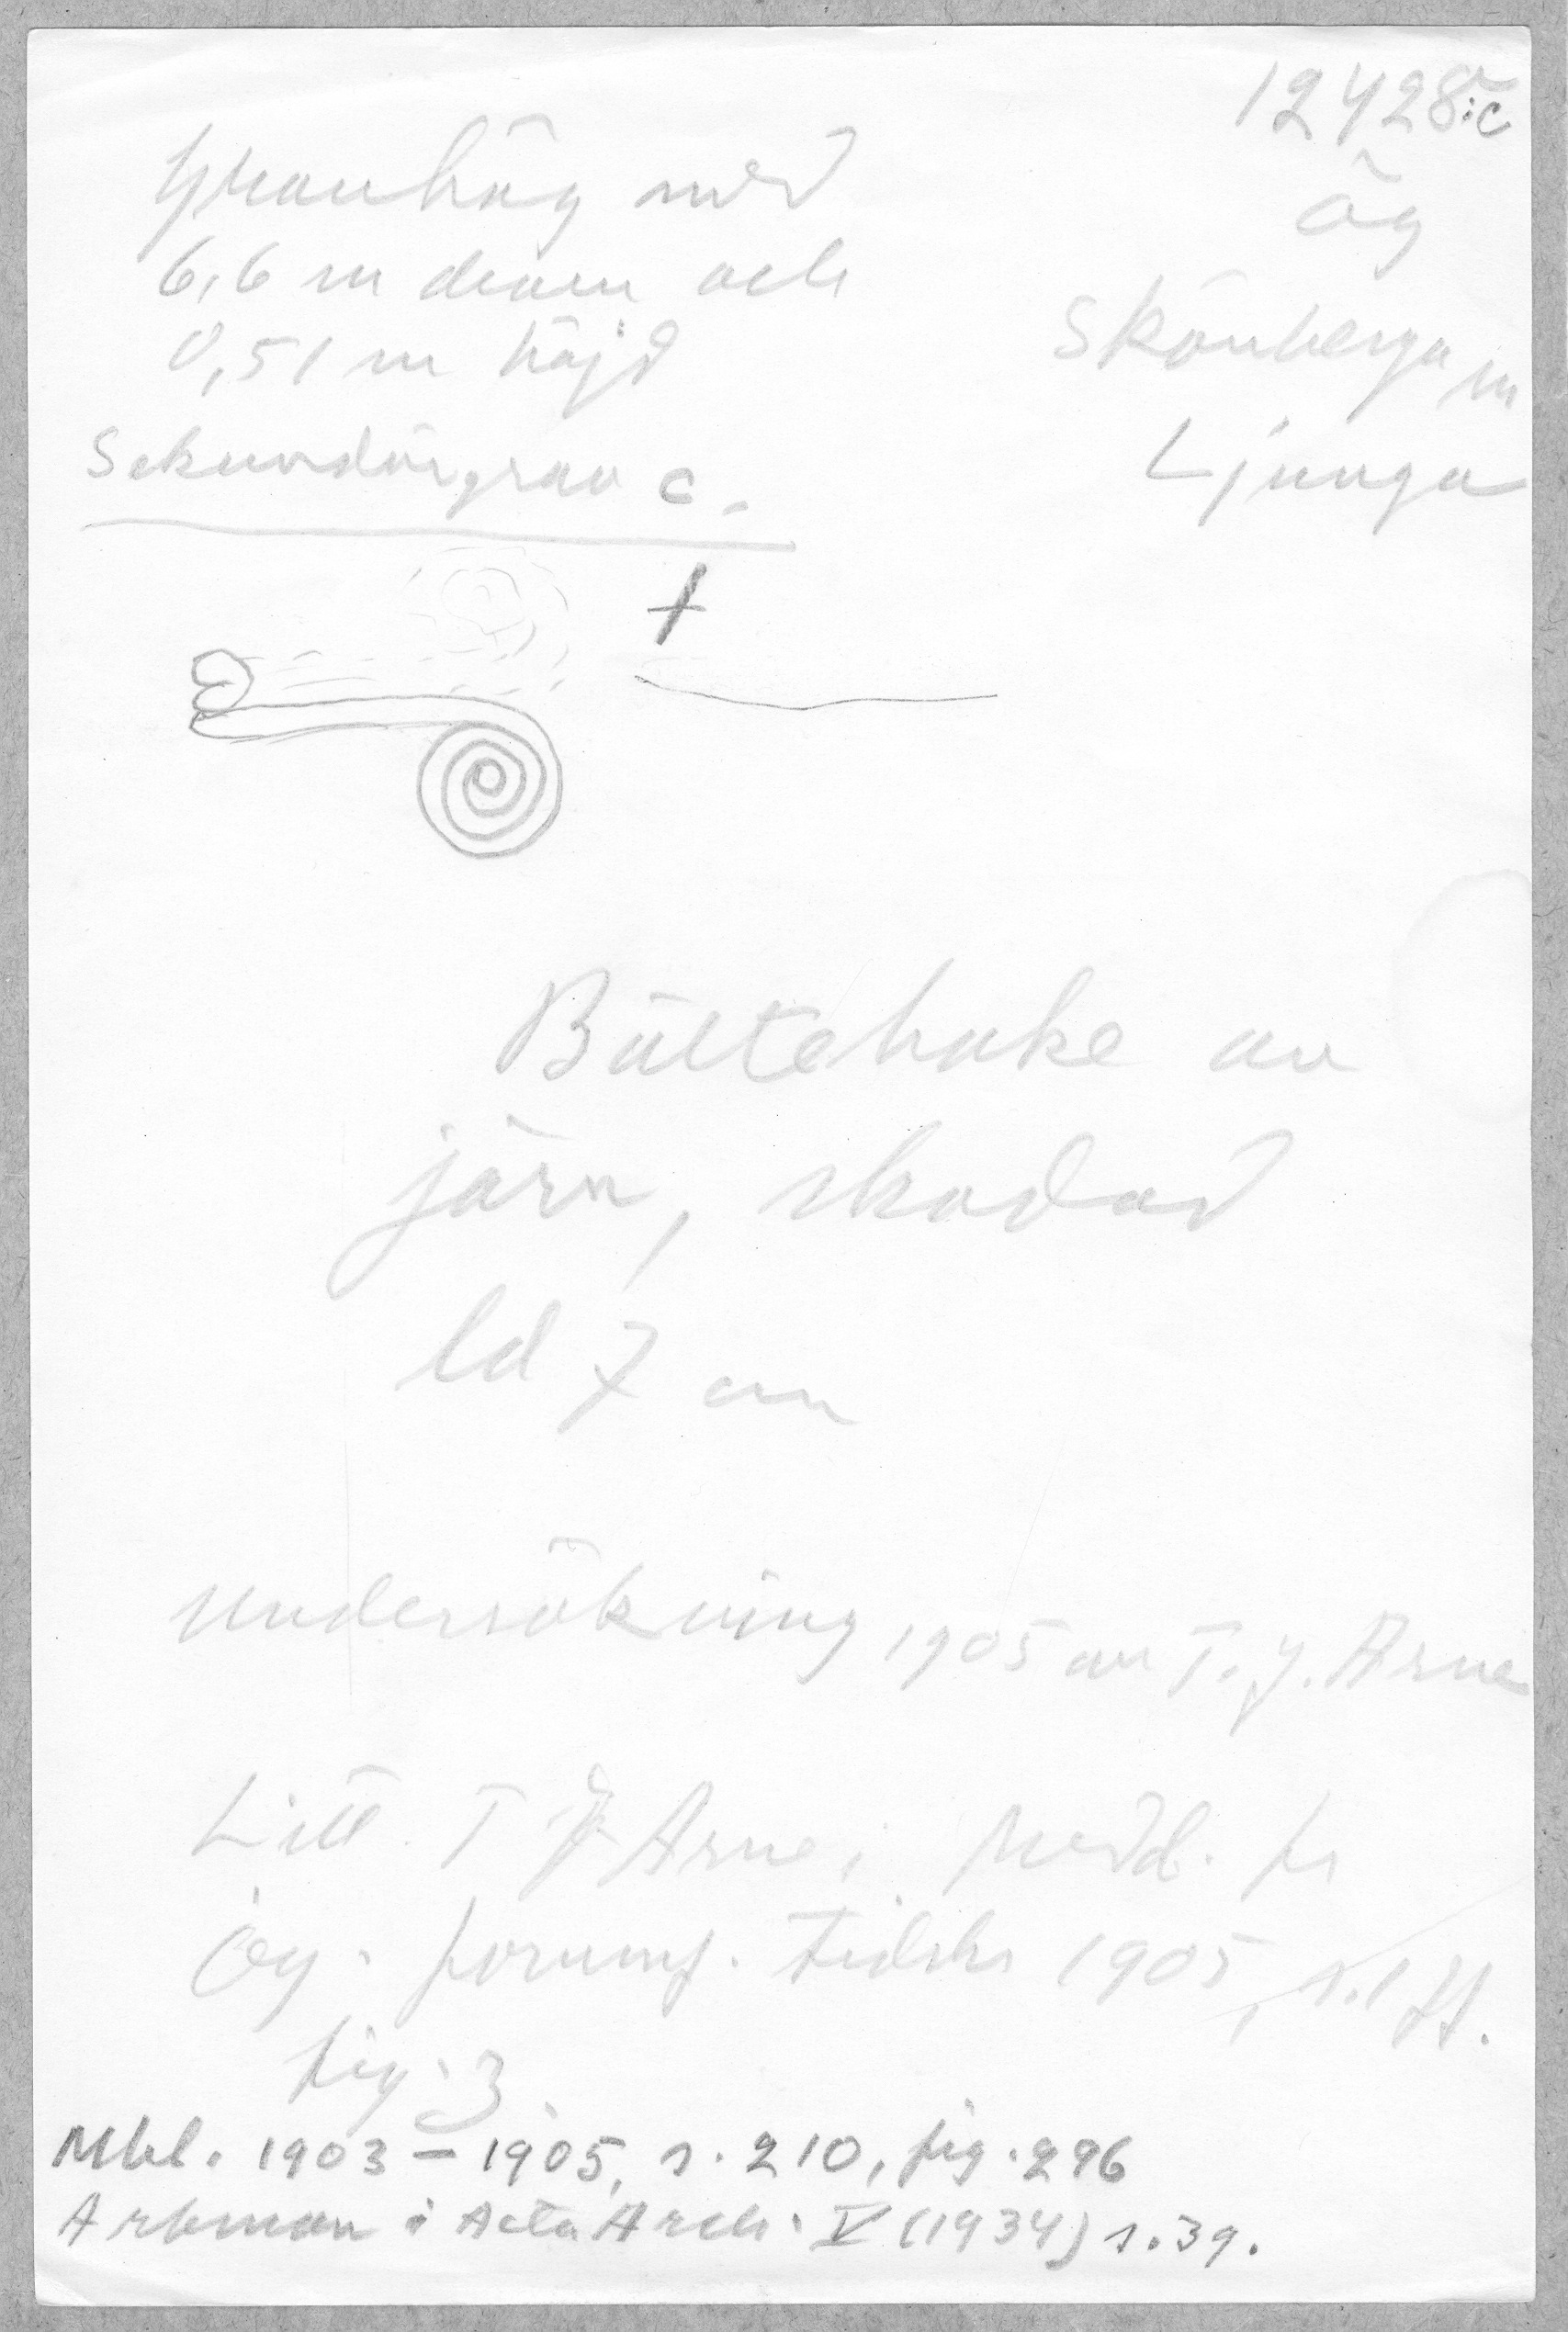 12428:c
Gravhög med
6,6 m diam och
0,51 m höjd
Sekundärgrav c.
Ög
Skönberga sn
Ljunga
Bältehake av
järn, skadad
ld 7 cm
Undersökning 1905 av T. J. Arne
Litt. T J Arne i Medd. fr
Ög. fornmf. tidskr 1905, s. 1 ff.
fig. 3
Mbl. 1903–1905, s. 210, fig. 296
Arbman i Acta Arch. V (1934) s. 39.